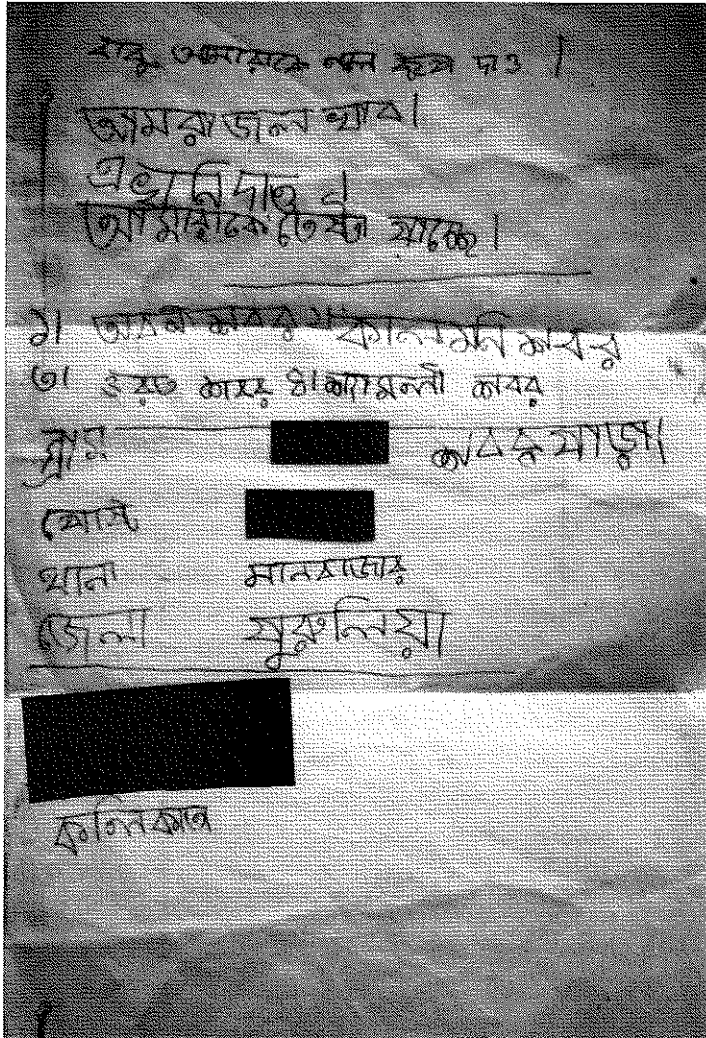 বাবু আমারকে নল কূপ দাও।
আমরা জল খাব।
এখুনি দাও।
আমারকে তেষ্টা পাচ্ছে।
১। শবর ২। কালমনি শবর
৩। ভরত শবর ৪। শ্যামলী শবর
গ্রাম শবর পাড়া
পোষ্ট
থানা মানবাজার
জেলা পুরুলিয়া
কলিকাতা